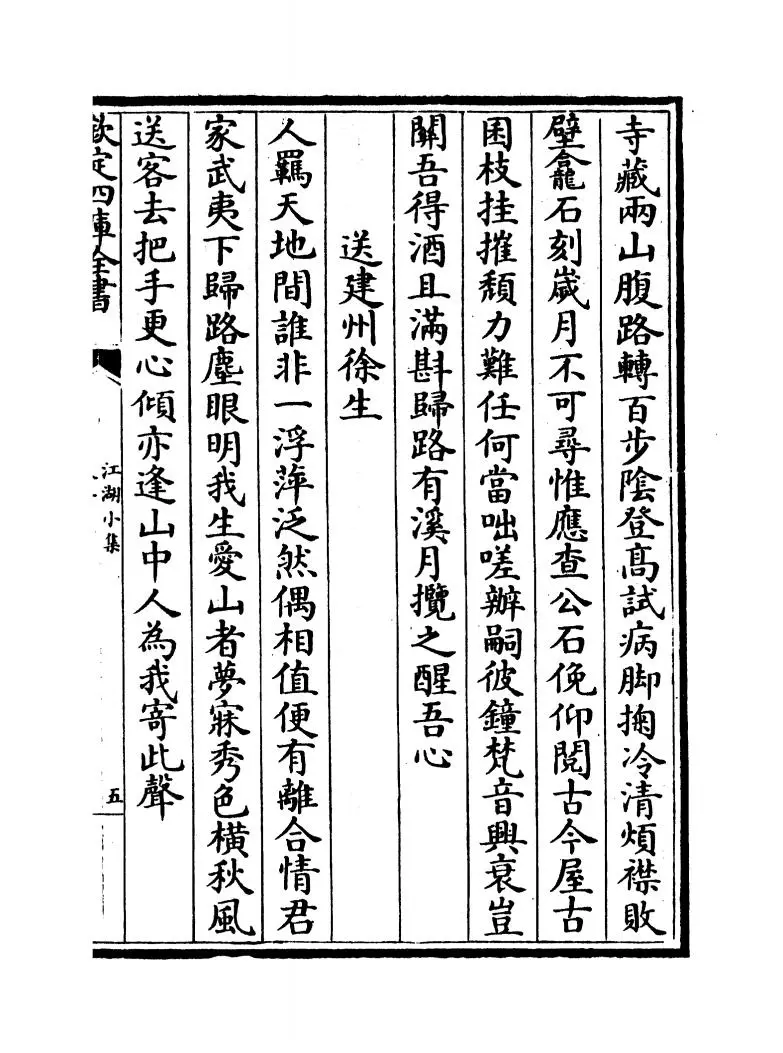 寺藏兩山腹路轉百步陰登髙試病脚掬冷清煩襟敗
壁龕石刻歲月不可尋惟應查公石俛仰閱古今屋古
困枝拄摧頽力難任何當咄嗟辦嗣彼鐘梵音興衰豈
關吾得酒且滿斟歸路有溪月攬之醒吾心
送建州徐生
人羈天地間誰非一浮萍泛然偶相值便有離合情君
家武夷下歸路塵眼明我生愛山者夢寐秀色橫秋風
送客去把手更心傾亦逢山中人為我寄此聲
欽定四庫全書
江湖小集
五